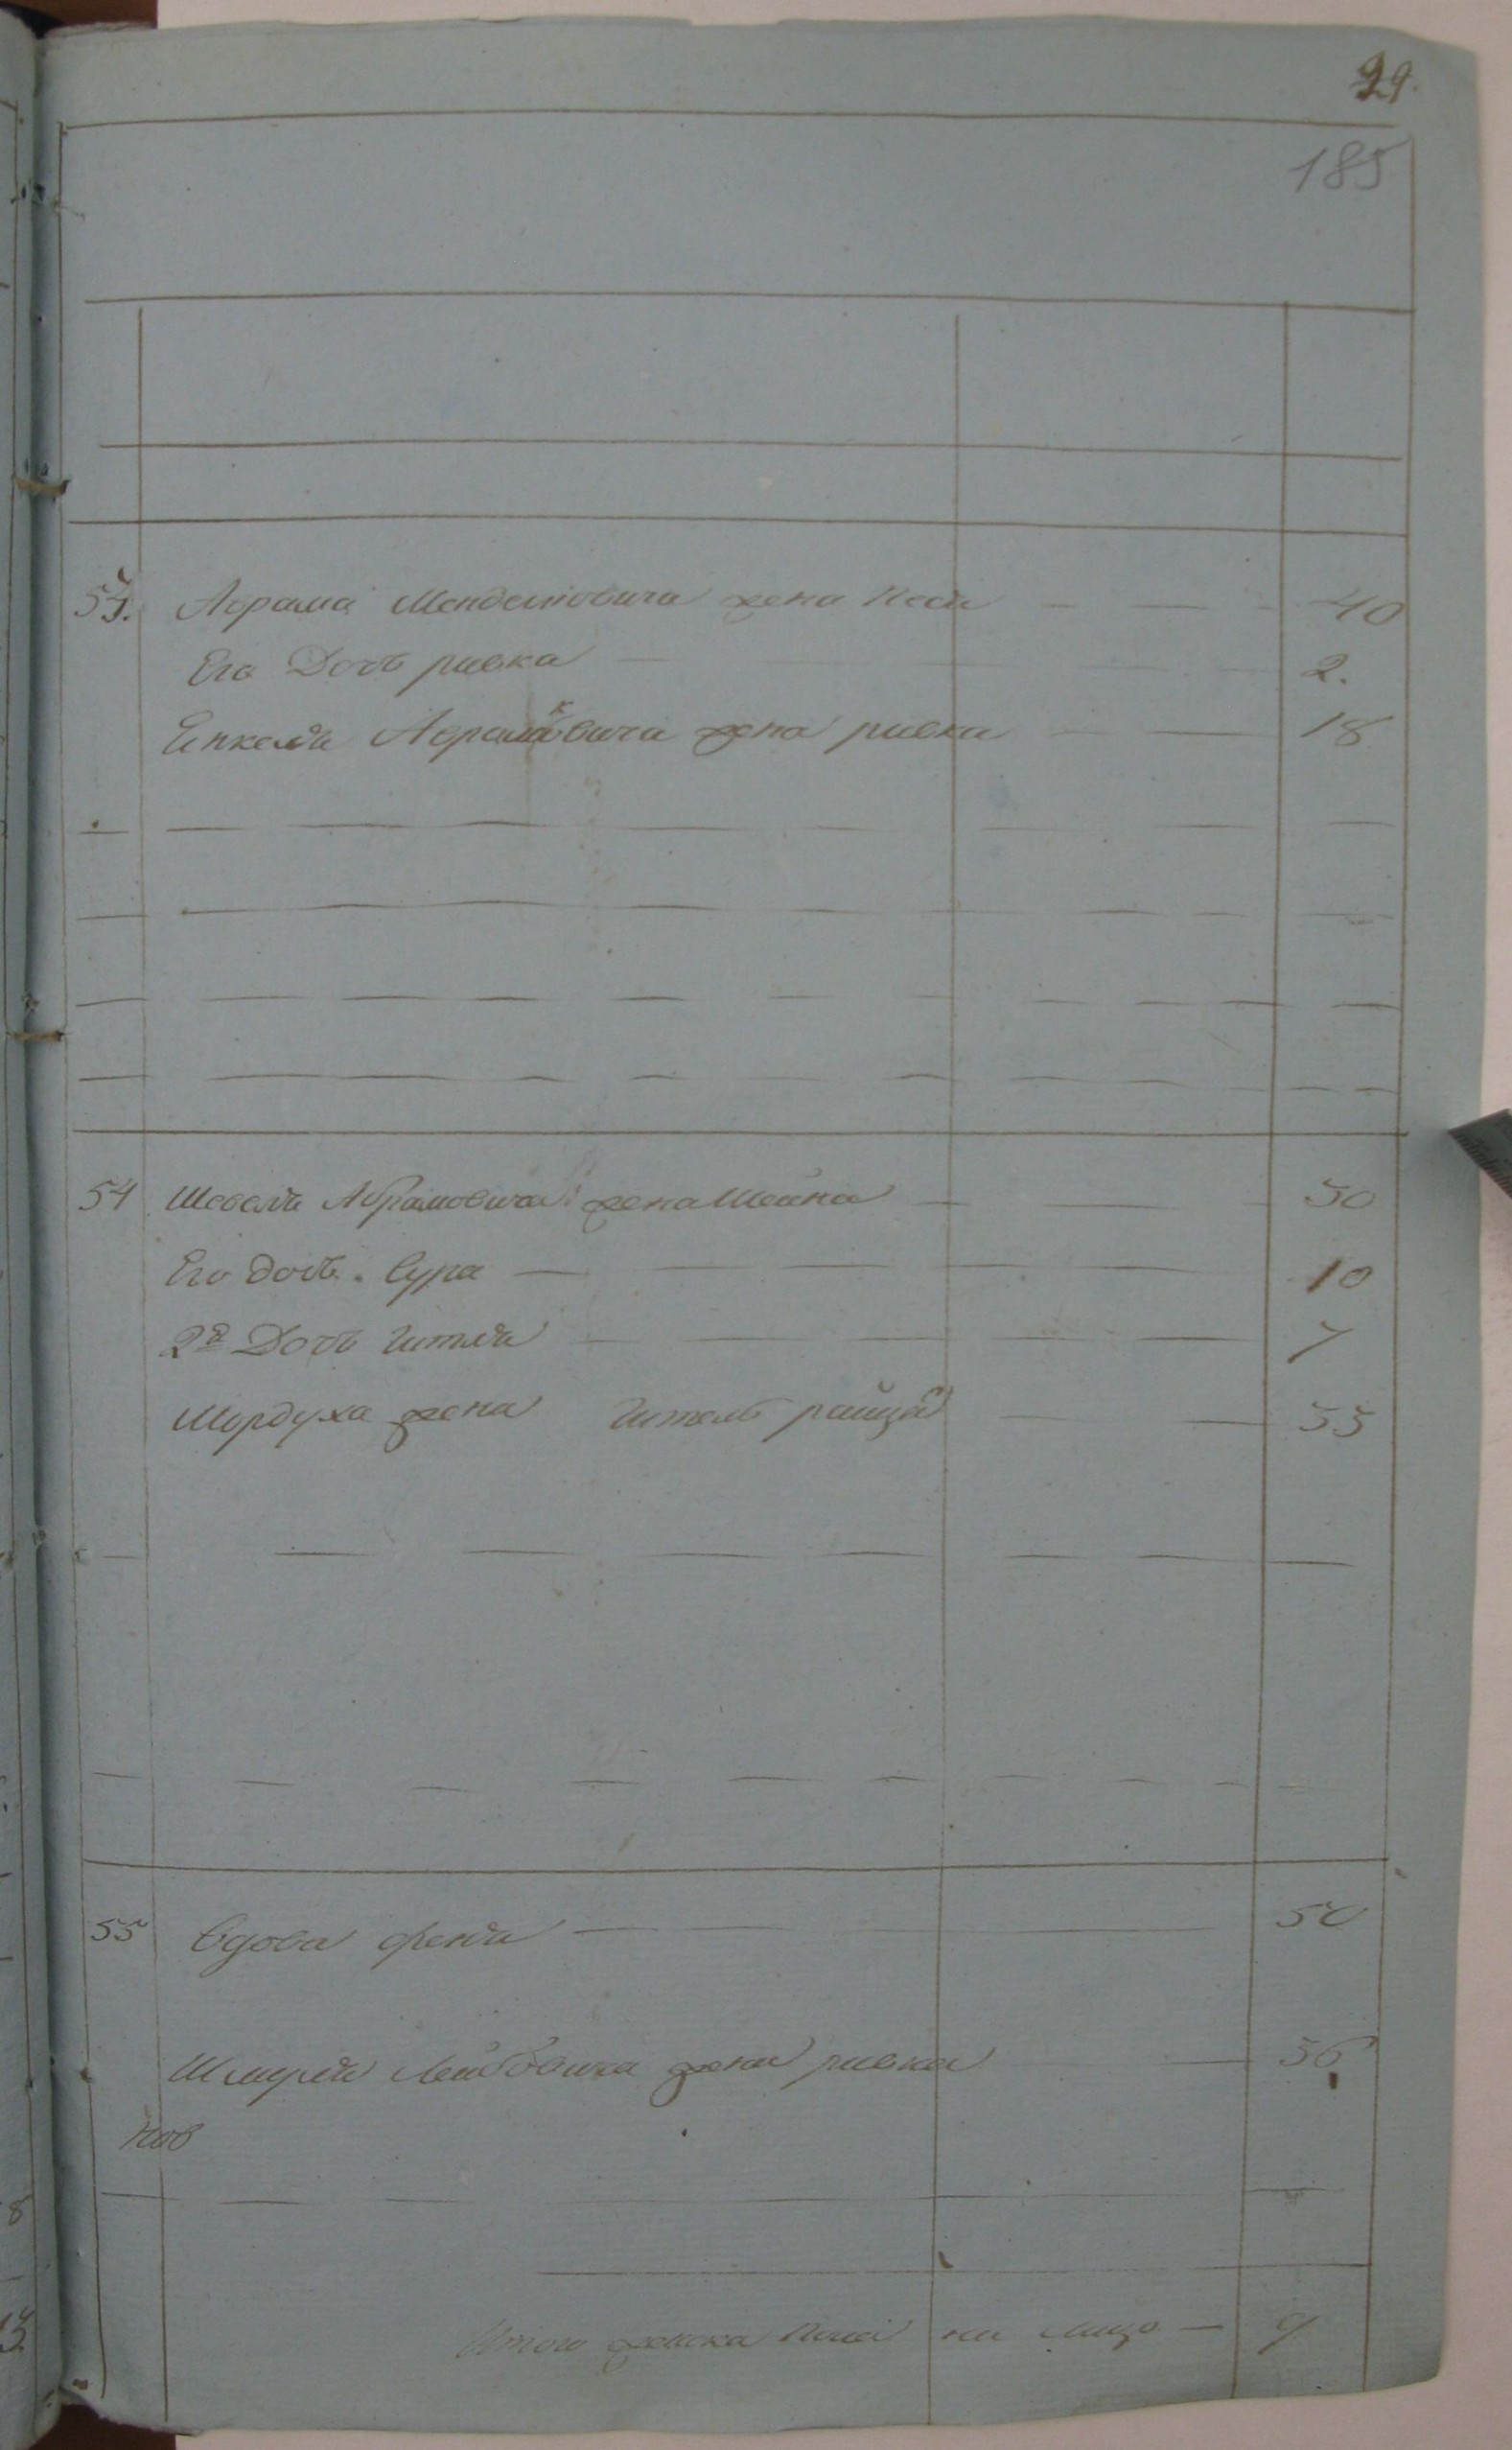 29.
185
53. Абрама Менделіовича жена Песя 40
Его Дочь ривка 2.
Енкеля Абрамовича жена ривка 18
54 Шевеля Абрамовича жена Шейна 50
Его дочь Сура 10
2я Дочь Гитля 7
Мордуха жена Гитель райца 55
55 Вдова фейга 50
Шмуля Лейбовича жена ривка 56
Итого женска Пола на лицо 9